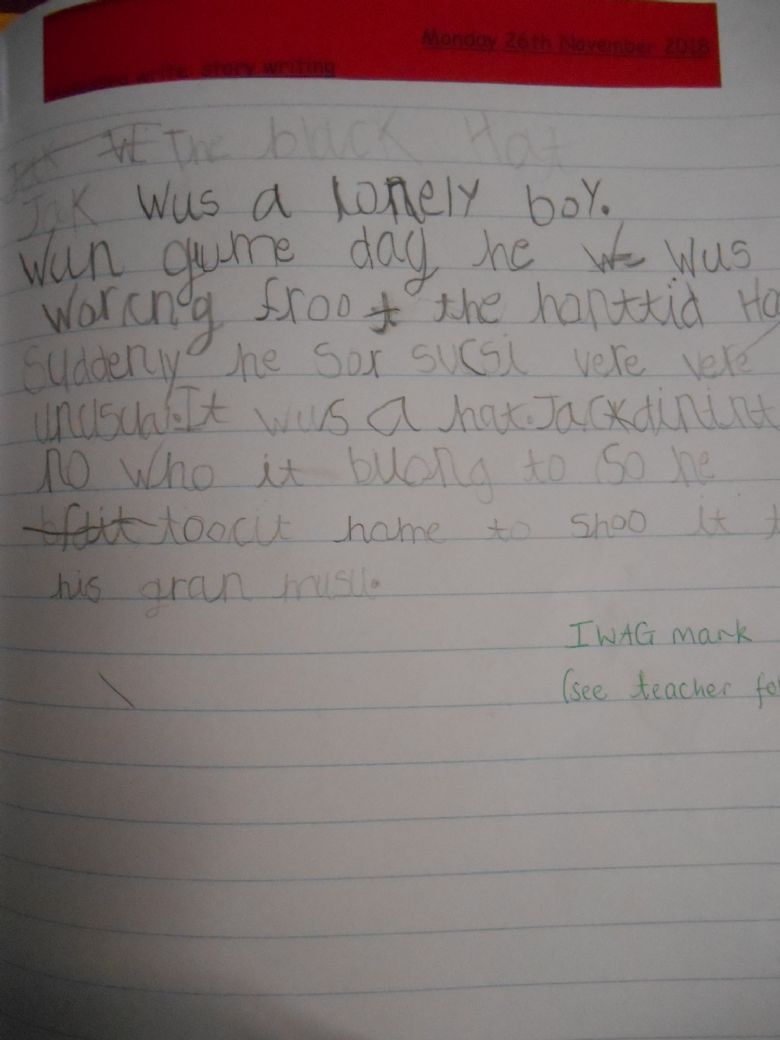 Monday 26th November 2018
write story writing
The black Hat
Jak wus a lonely boy.
wun gume day he wus
worcng froo the honttid Ho
Suddenly he sor sucsi vere vere
unusual. It wus a hat. Jack dinint
no who it buong to so he
toocit home to shoo it t
his gran musu.
IWAG mark
(see teacher fo